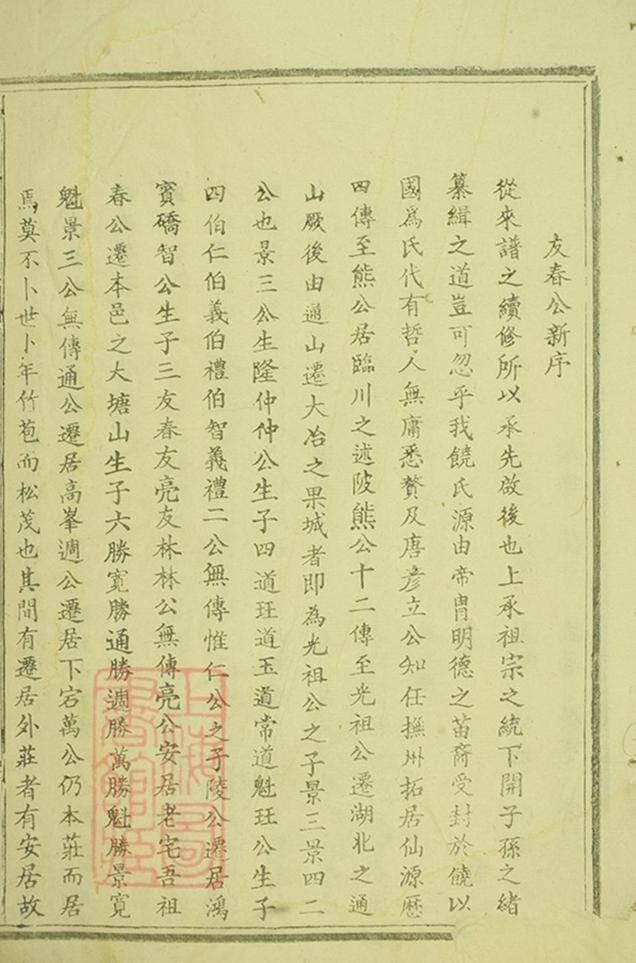 友春公新序
從來譜之續修所以承先啟後也上承祖宗之統下開子孫之緒
纂緝之道豈可忽乎我饒氏源由帝胄明德之苗裔受封於饒以
國為氏代有哲人無庸悉贅及唐彦立公知任撫州拓居仙源歷
四傳至熊公居臨川之述陂熊公十二傳至光祖公遷湖北之通
山厥後由通山遷大冶之果城者即為光祖公之子景三景四二
公也景三公生隆仲仲公生子四道玨道玉道常道魁玨公生子
四伯仁伯義伯禮伯智義禮二公無傳惟仁公之子陵公遷居鴻
賓礄智公生子三友春友亮友林林公無傳亮公安居老宅吾祖
春公遷本邑之大塘山生子六勝寬勝通勝週勝萬勝魁勝景寬
魁景三公無傳通公遷居高峯週公遷居下宕萬公仍本莊而居
焉莫不卜世卜年竹苞而松茂也其間有遷居外莊者有安居故